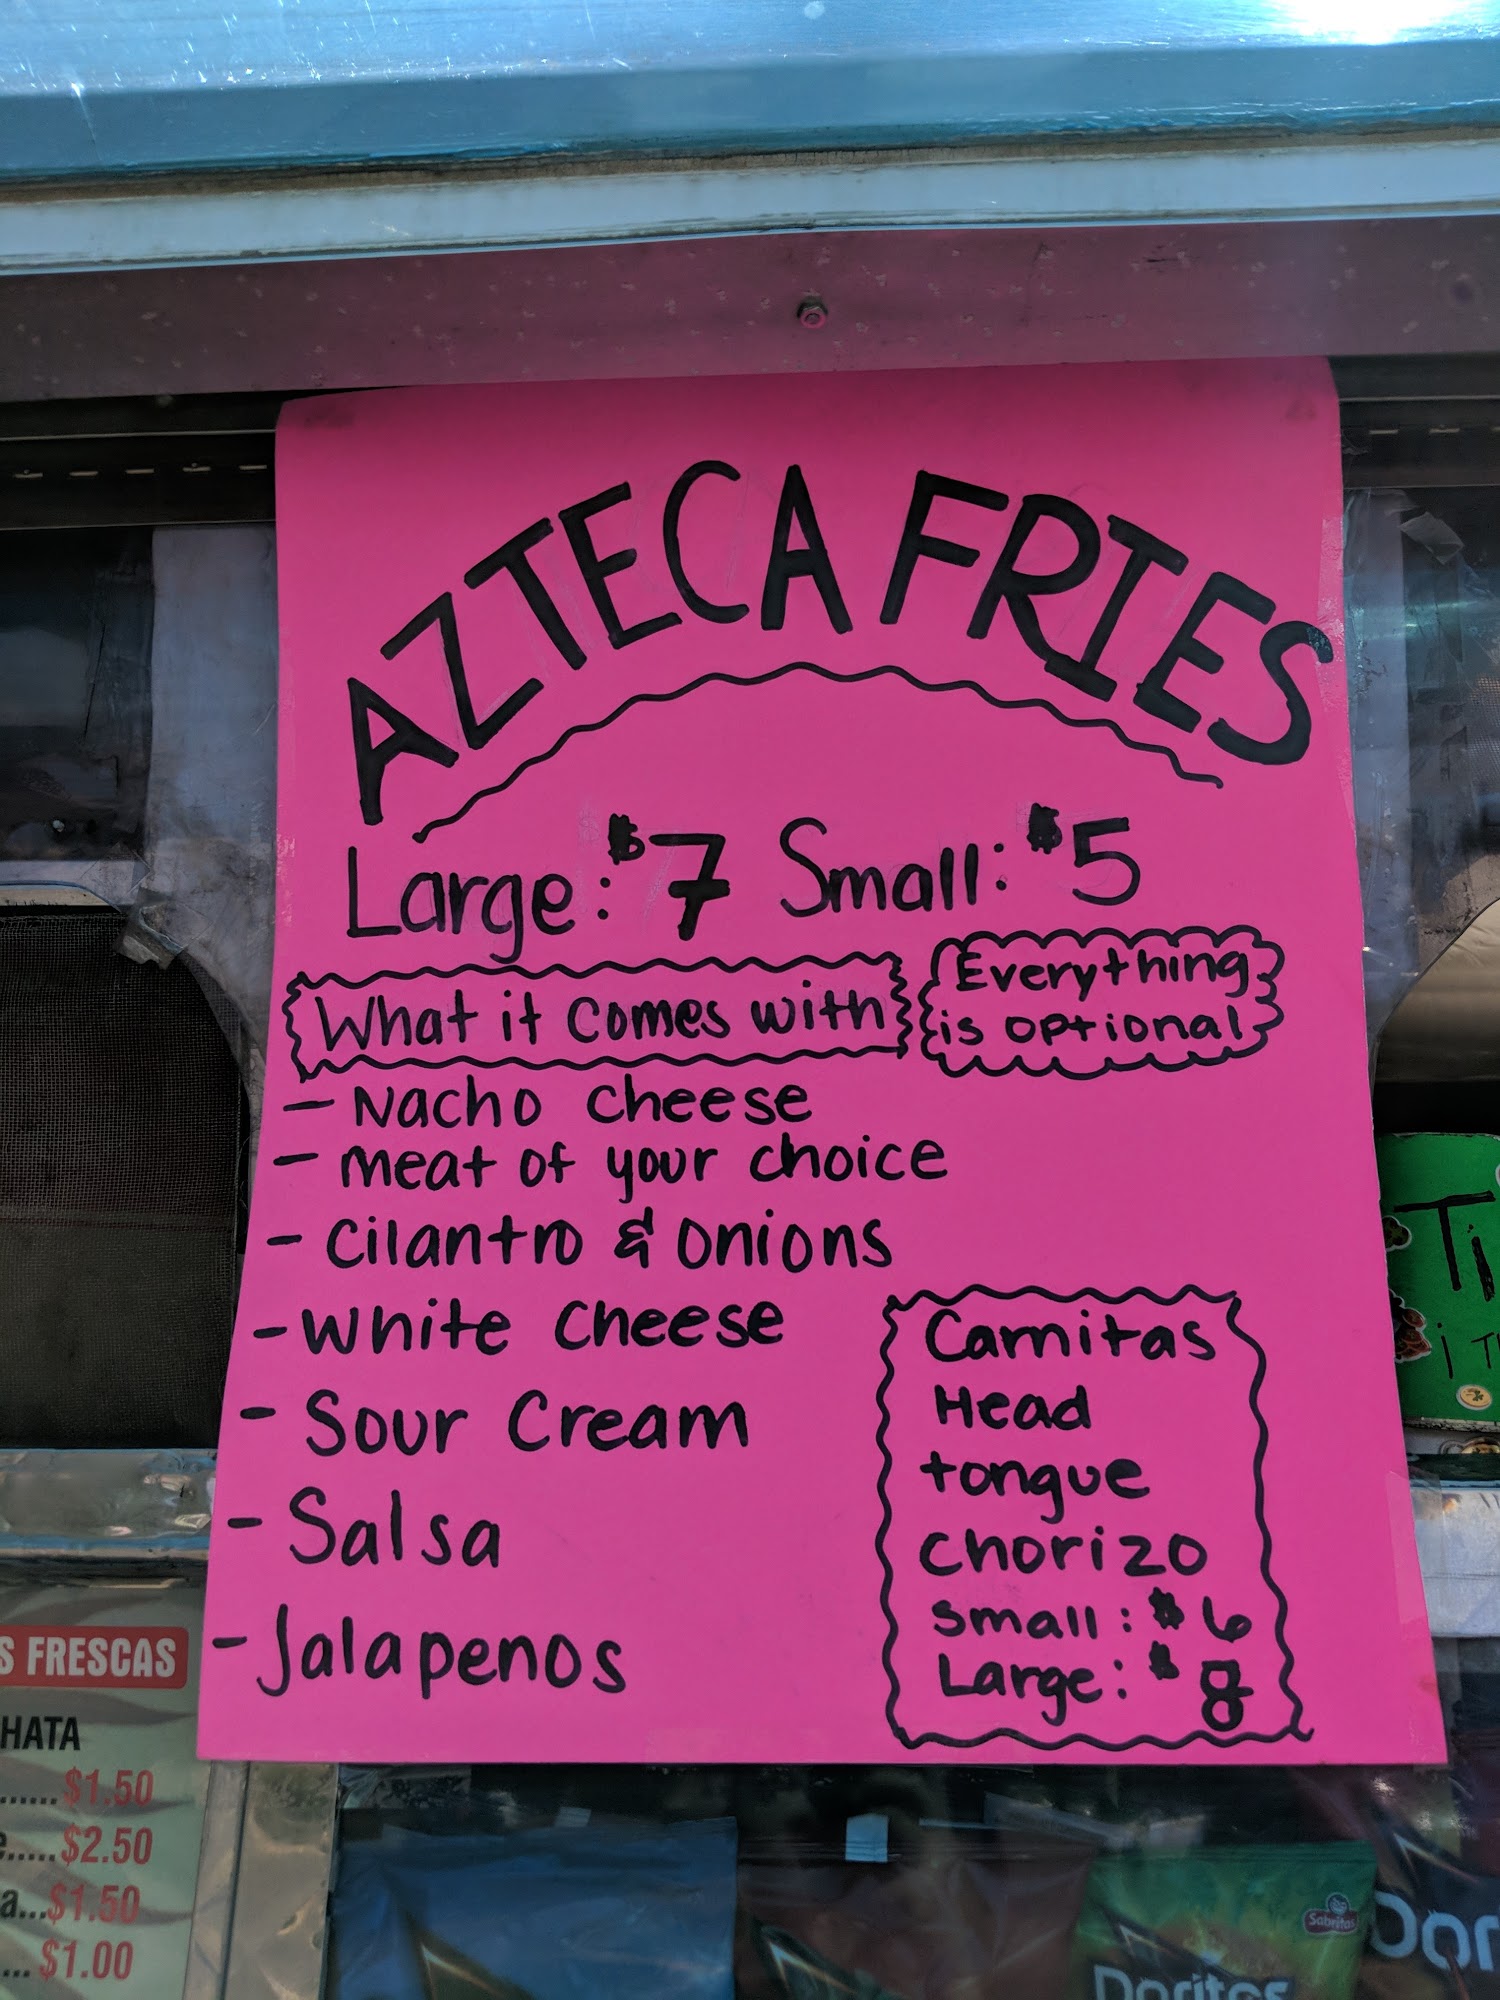 AZTECA FRIES
Large: $7 Small: $5
What it comes with
Everything
is optional
- Nacho cheese
- meat of your choice
- cilantro & onions
- white cheese
- Sour Cream
- Salsa
- Jalapenos
Carnitas
Head
tongue
chorizo
small: $6
Large: $8
S FRESCAS
HATA
......$1.50
.....$2.50
a...$1.50
... $1.00
Ti
Sabritas
Doritos
Dor